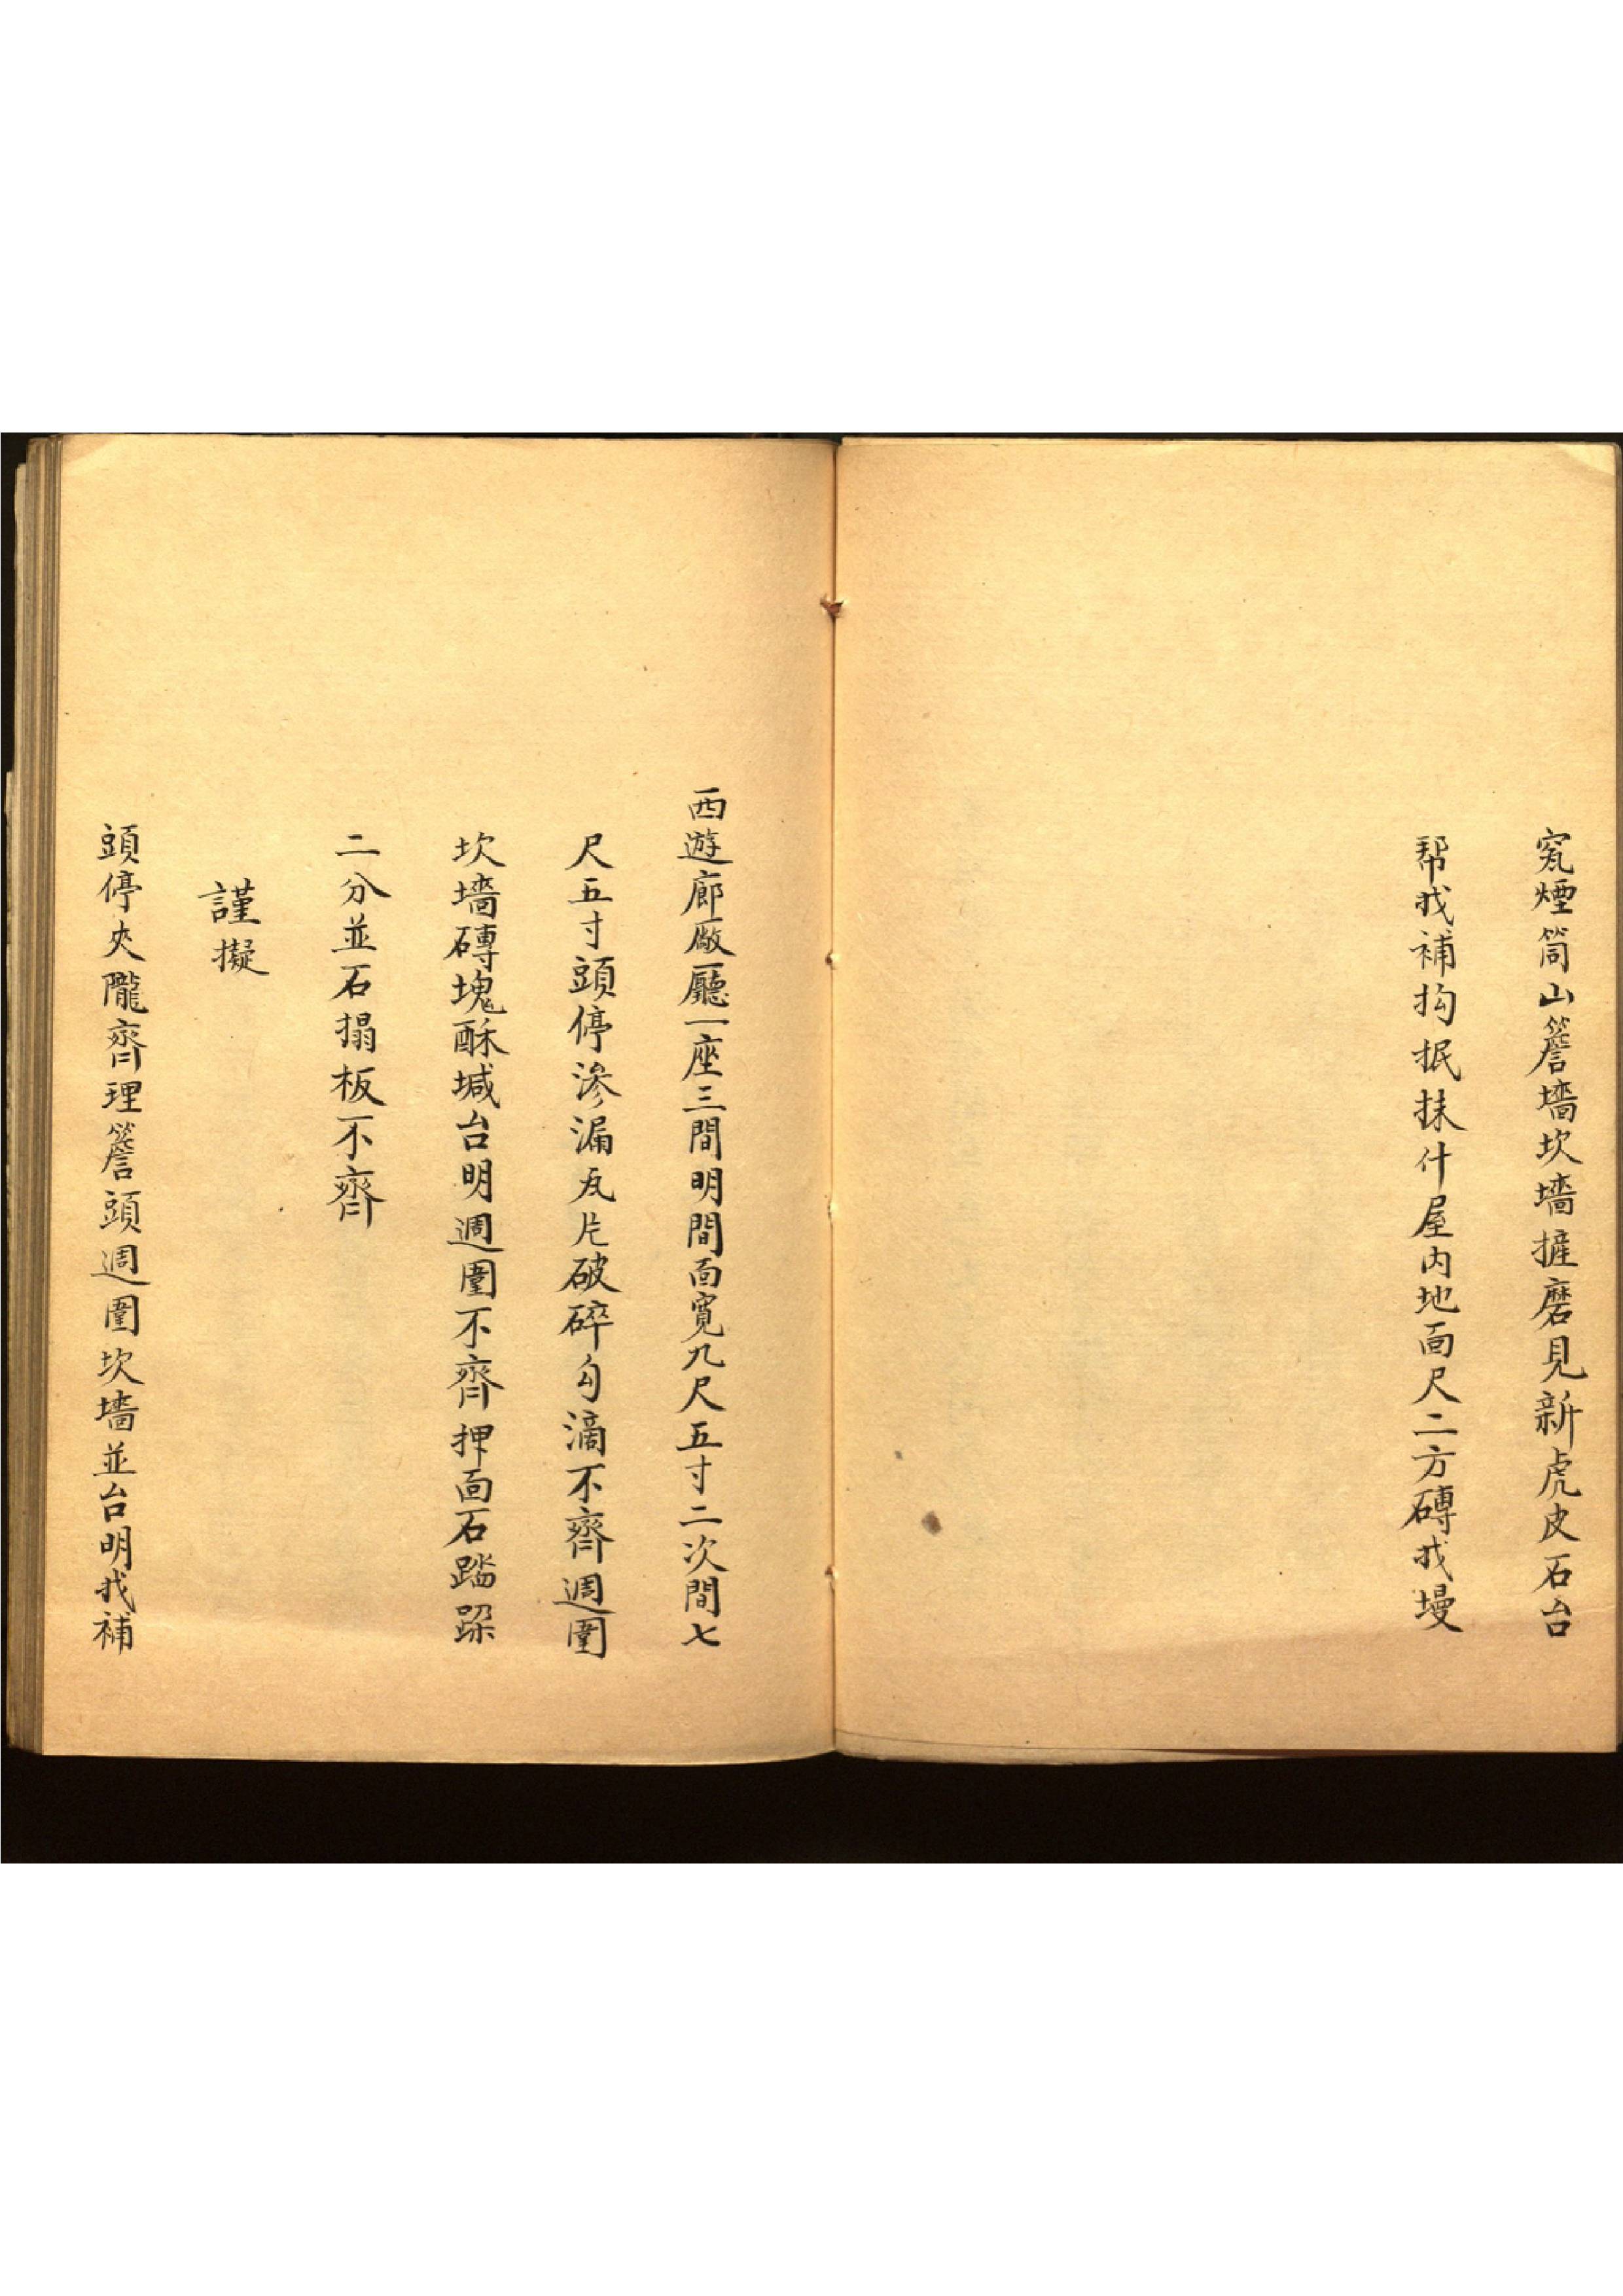 窊煙筒山簷墻坎墻摧磨見新虎皮石台
帮找補抅抿抹什屋内地面尺二方磚找墁
西遊廊厰廳一座三間明間面寬九尺五寸二次間七
尺五寸頭停滲漏瓦片破碎勾滴不齊週圍
坎墻磚塊酥堿台明週圍不齊押面石踏跺
二分並石搨板不齊
謹擬
頭停夾隴齊理簷頭週圍坎墻並台明找補